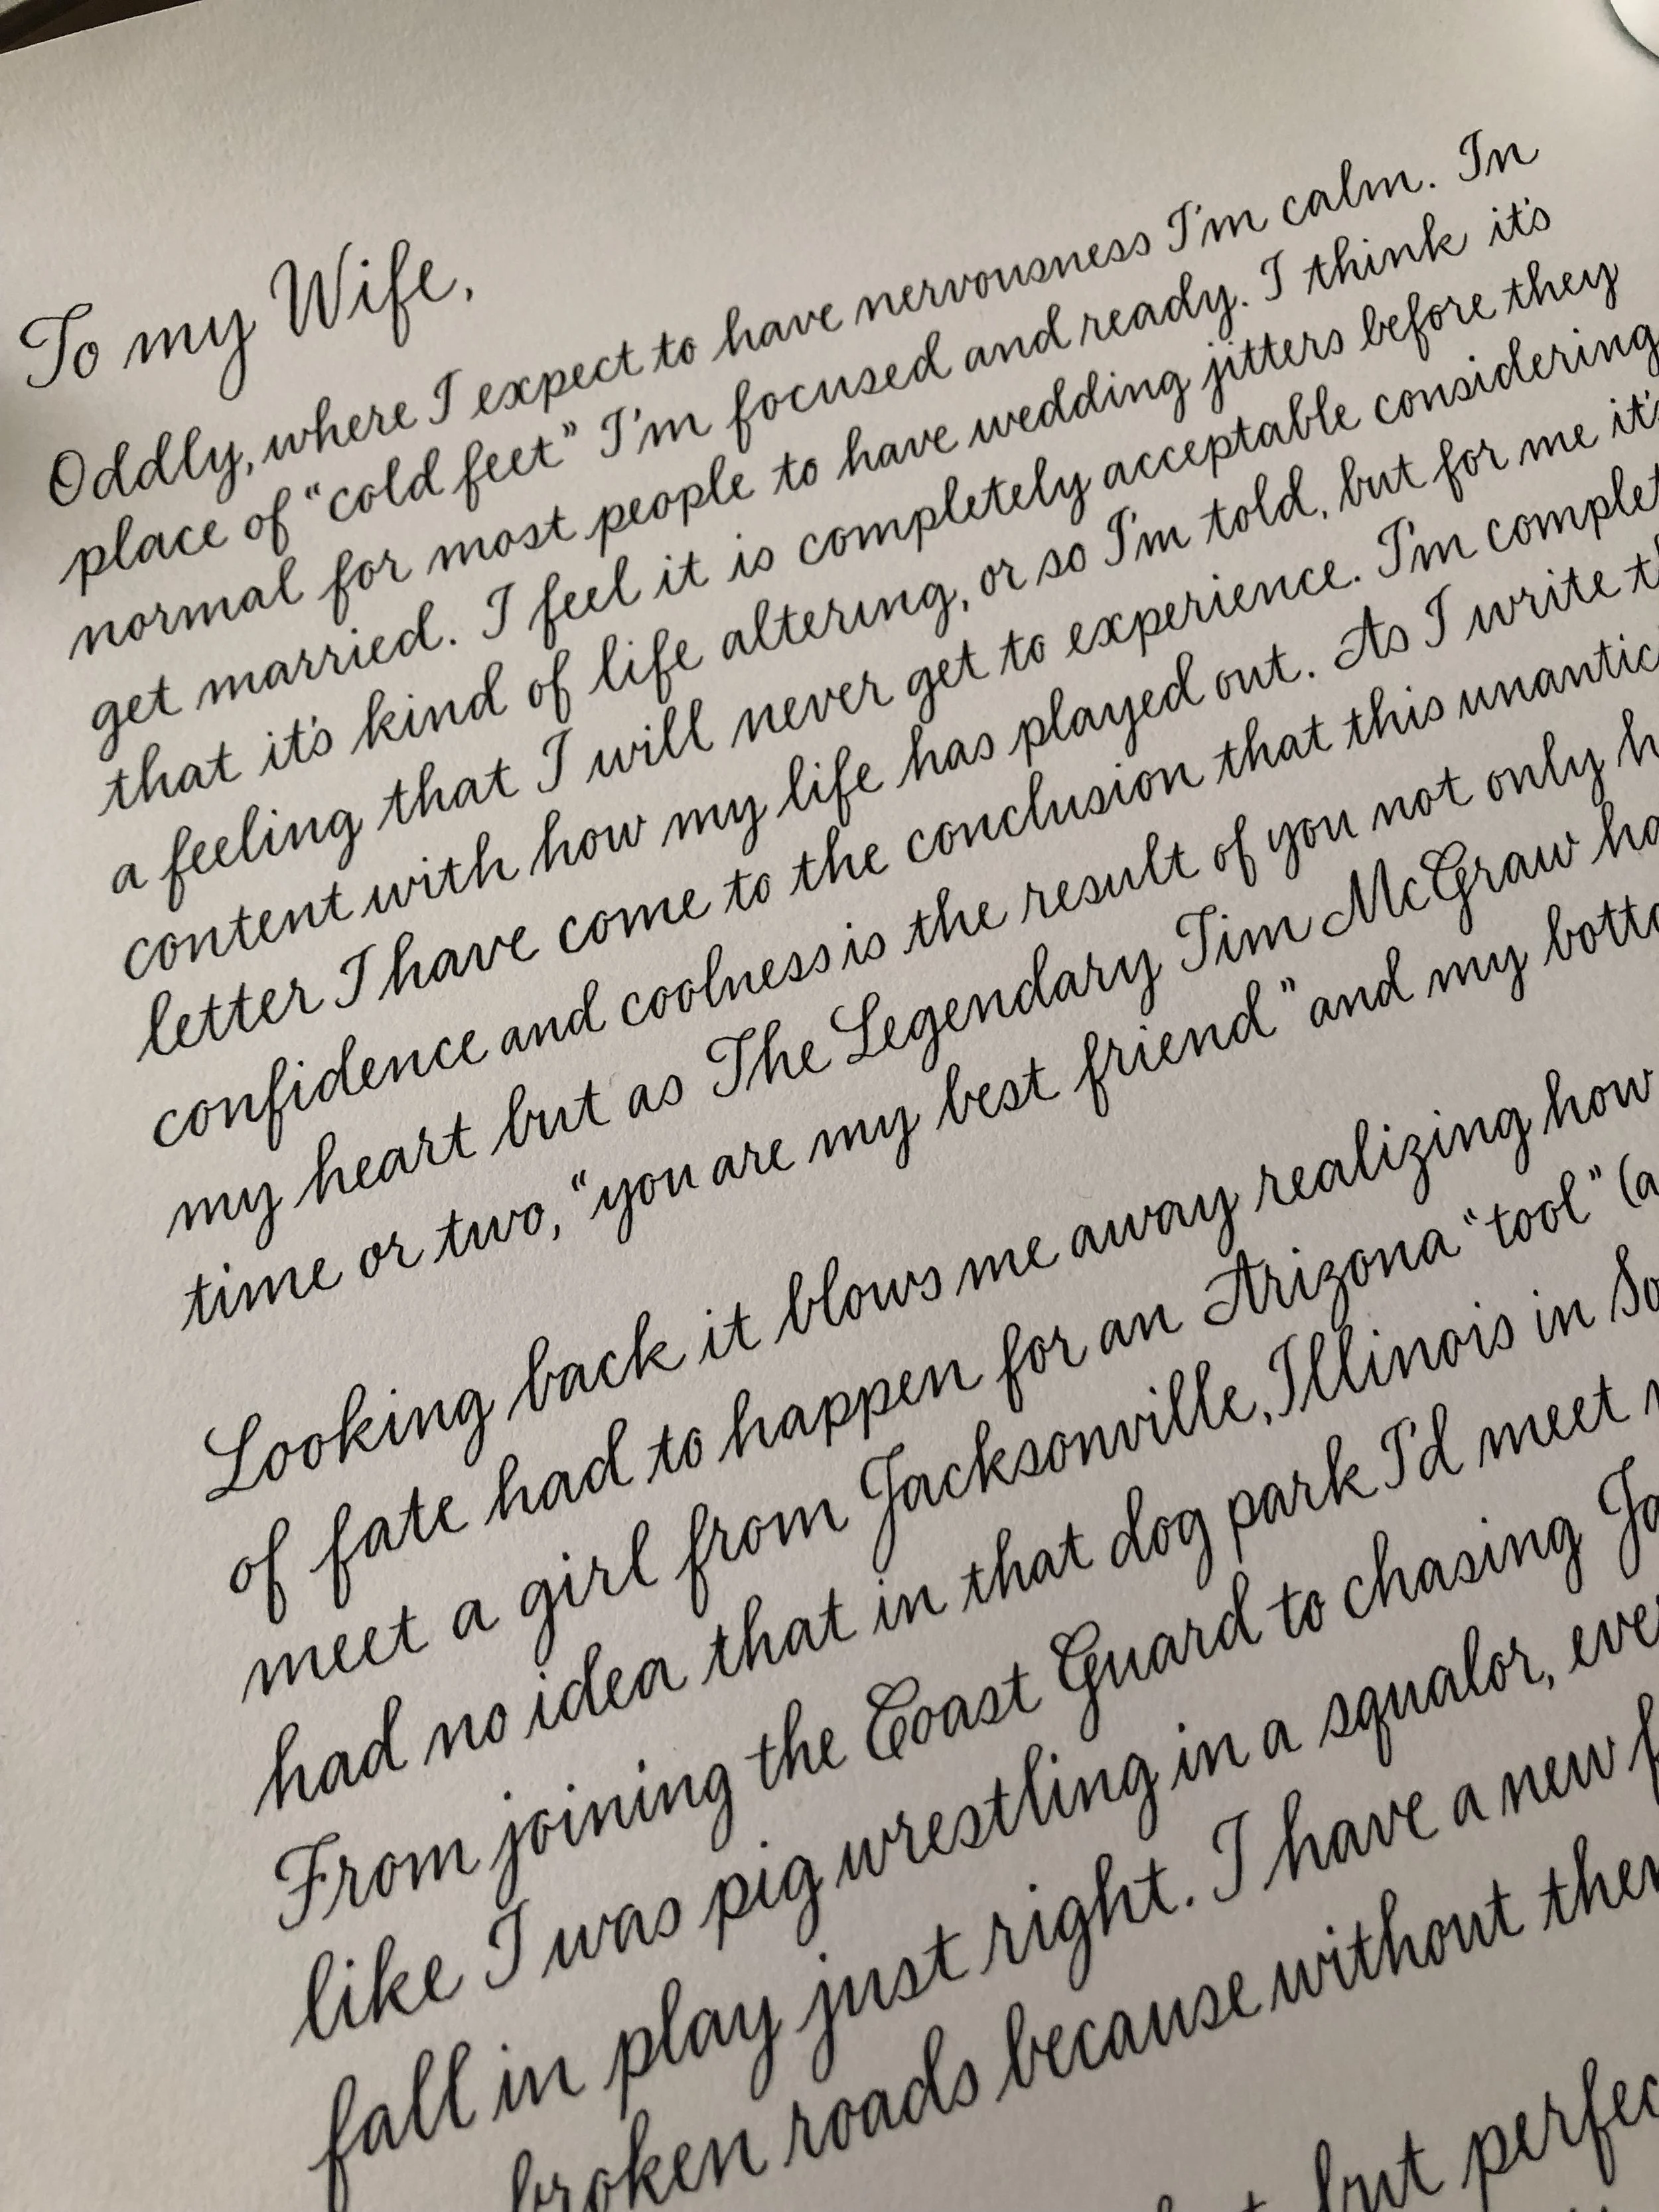 To my Wife,
Oddly, where I expect to have nervousness I'm calm. In
place of "cold feet" I'm focused and ready. I think it's
normal for most people to have wedding jitters before they
get married. I feel it is completely acceptable considering
that it's kind of life altering, or so I'm told, but for me it's
a feeling that I will never get to experience. I'm complet
content with how my life has played out. As I write th
letter I have come to the conclusion that this unantici
confidence and coolness is the result of you not only h
my heart but as The Legendary Tim McGraw ha
time or two, "you are my best friend" and my botto
Looking back it blows me away realizing how
of fate had to happen for an Arizona "tool" (a
meet a girl from Jacksonville, Illinois in So
had no idea that in that dog park I'd meet
From joining the Coast Guard to chasing Ja
like I was pig wrestling in a squalor, eve
fall in play just right. I have a new f
broken roads because without the
but perfec